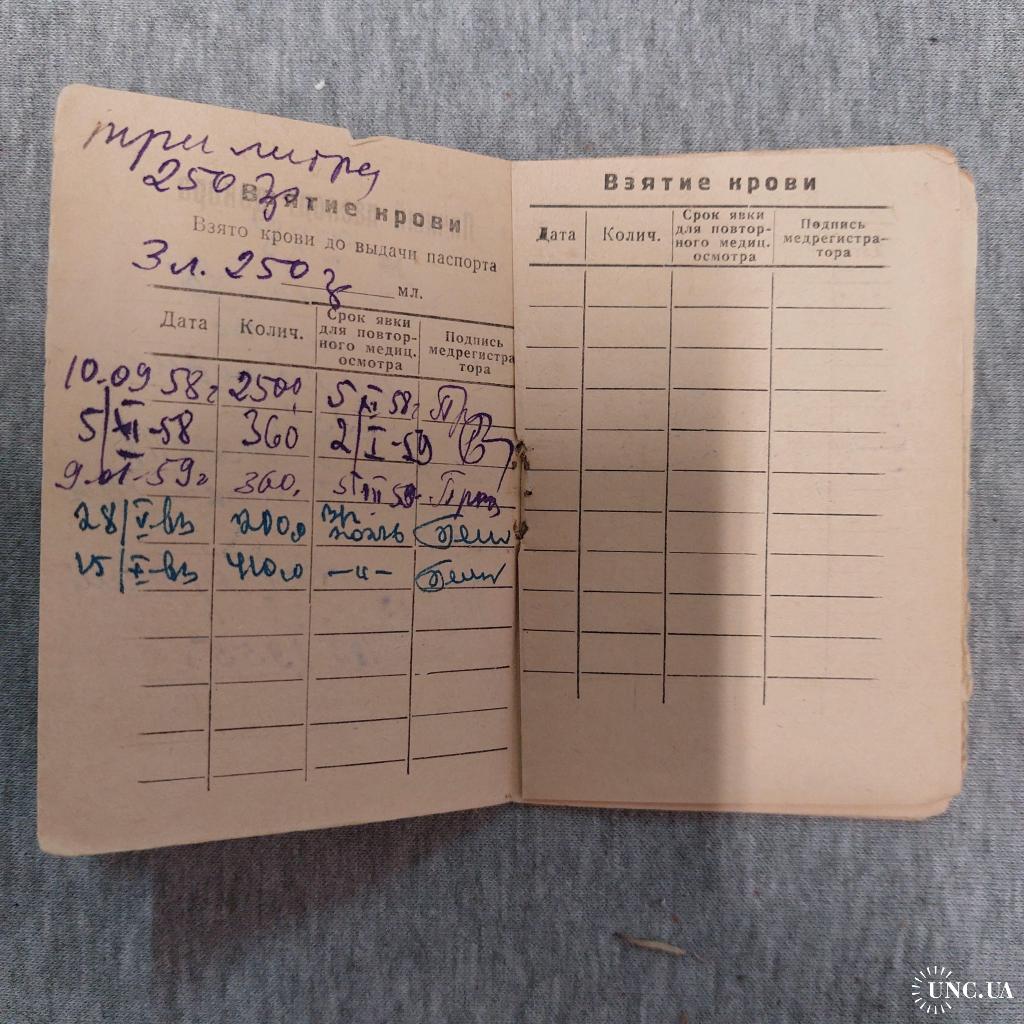 три литра
250 гр
Взятие крови
Взято крови до выдачи паспорта
3 л. 250 г мл.
Дата Колич. Срок явки для повтор-ного медиц. осмотра Подпись медрегистра-тора
10.09 58г 250,0 5 XI 58г
5/XI-58 360 2/I-59
9.01-59г 360,
28/V- 200,0
15/X- 410,0 -"-
Взятие крови
Дата Колич. Срок явки для повтор-ного медиц. осмотра Подпись медрегистра-тора
UNC.UA